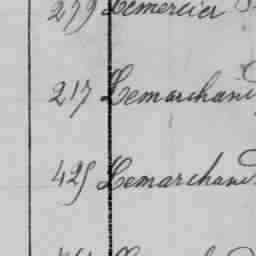 279 Lemercier
217 Lemarchand
425 Lemarchand